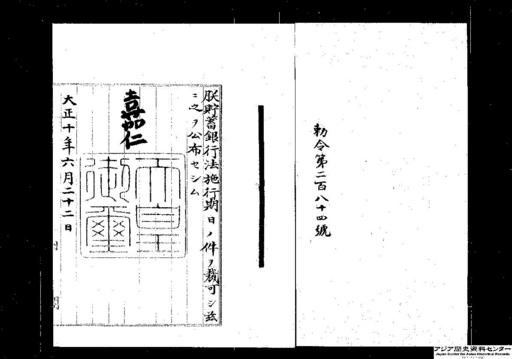 勅令第二百八十四號
朕貯蓄銀行法施行期日ノ件ヲ裁可シ茲
ニ之ヲ公布セシム
嘉仁
天皇
御璽
大正十年六月二十二日
アジア歴史資料センター
Japan Center for Asian Historical Records